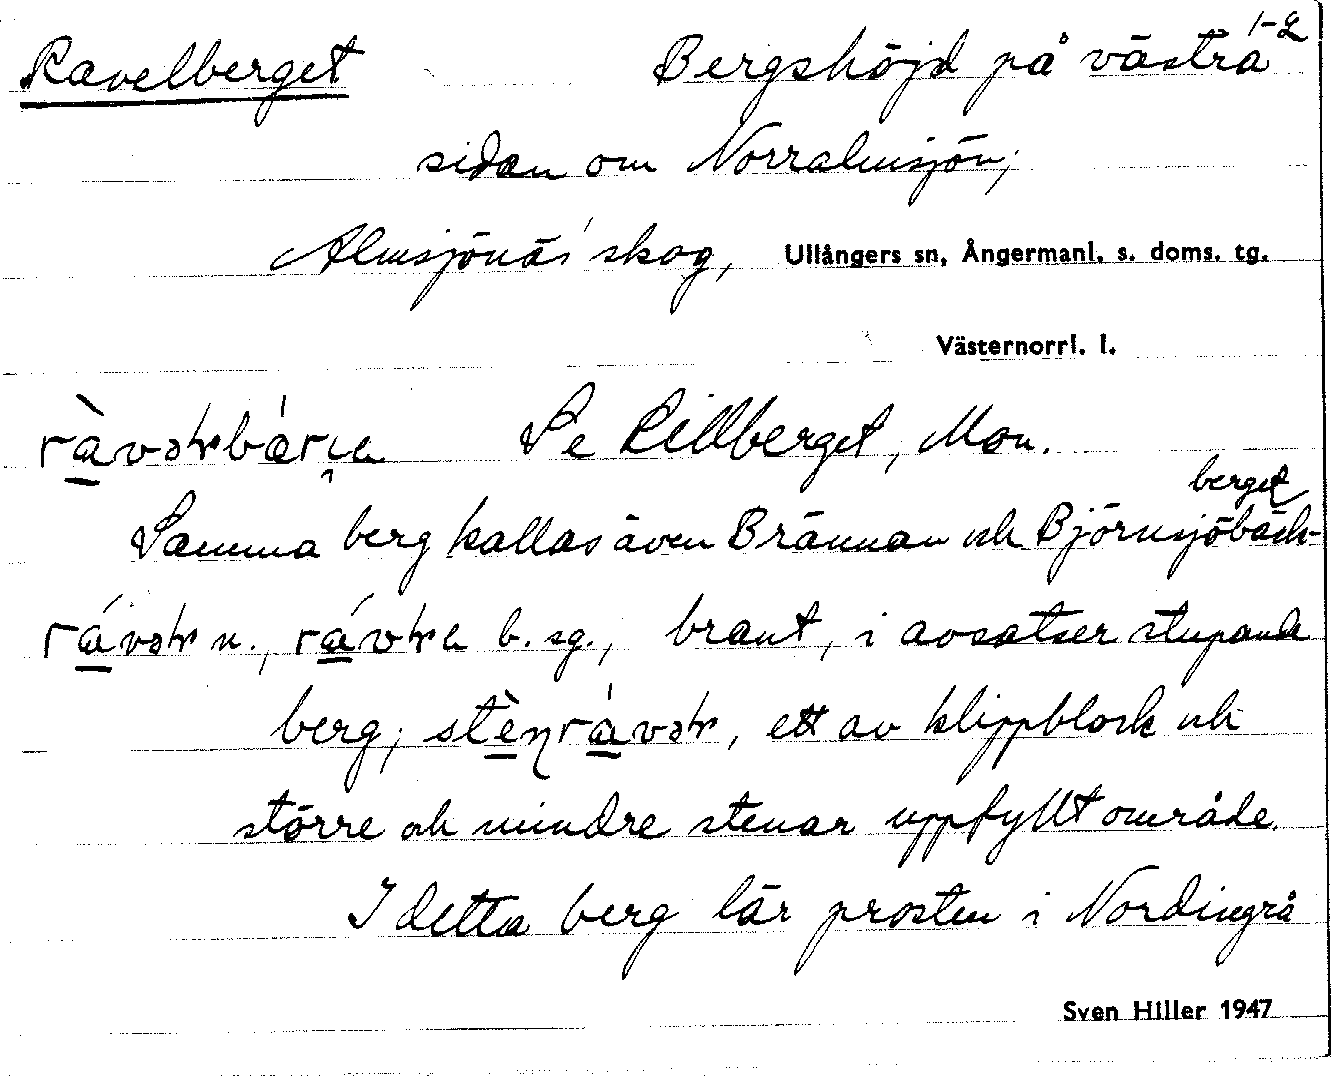 1-2
Ravelberget Bergshöjd på västra
sidan om Norralmsjön;
Almsjönäs' skog, Ullångers sn, Ångermanl. s. doms. tg.
Västernorrl. l.
Se Lillberget, Mon.
berget
Samma berg kallas även Brännan och Björnsjöbäck-
n., b. sg., brant, i avsatser stupande
berg; ett av klippblock och
större och mindre stenar uppfyllt område.
I detta berg lär prosten i Nordingrå
Sven Hiller 1947